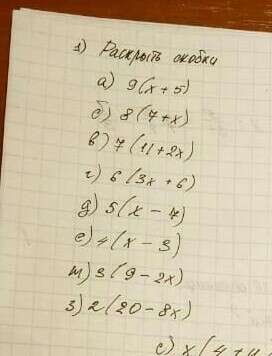 1) Раскрыть скобки
а) 9(x+5)
б) 8(7+x)
в) 7(11+2x)
г) 6(3x+6)
д) 5(x-7)
е) 4(x-3)
ж) 3(9-2x)
з) 2(20-8x)